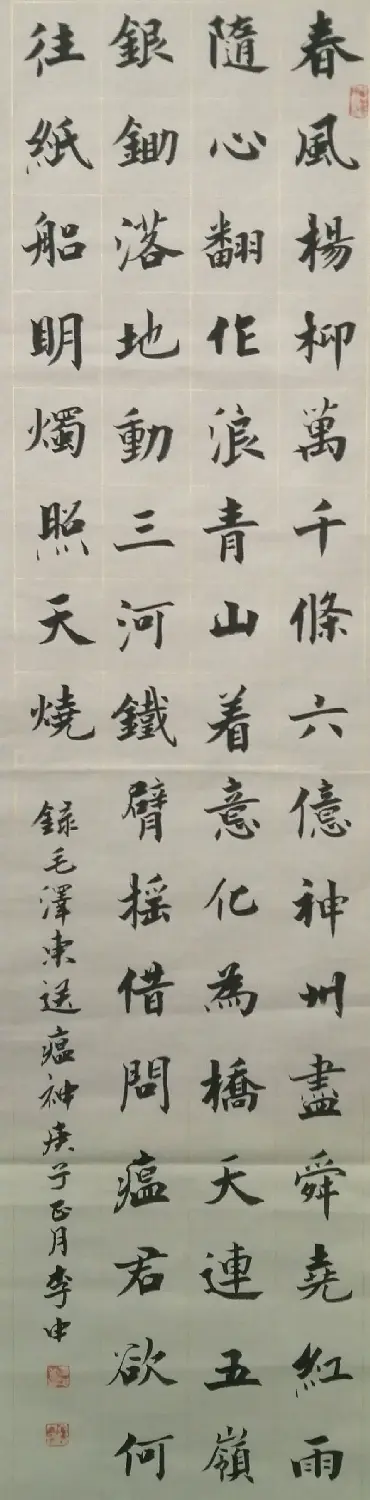 春風楊柳萬千條六億神州盡舜堯紅雨
隨心翻作浪青山着意化為橋天連五嶺
銀鋤落地動三河鐵臂摇借問瘟君欲何
往紙船明燭照天燒
録毛澤東送瘟神庚子正月李申